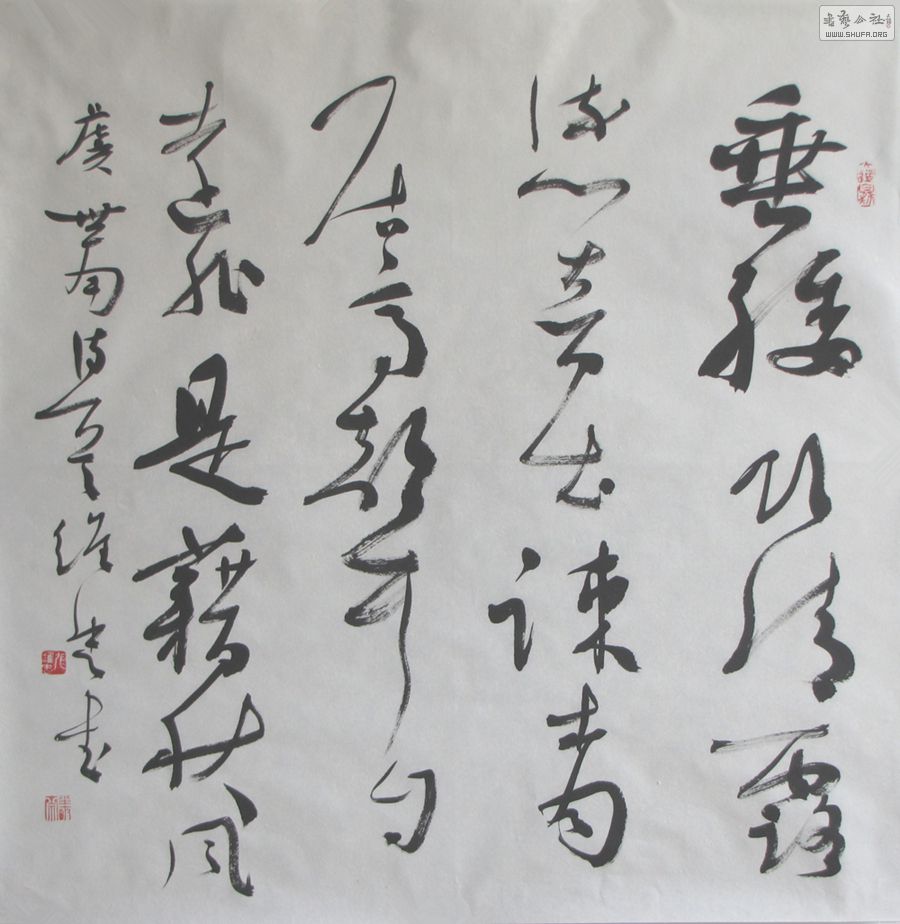 書藝公社
WWW.SHUFA.ORG
垂緌飲清露
流響出疎桐
居高聲自
遠非是藉秋風
虞世南詩一首 維忠書